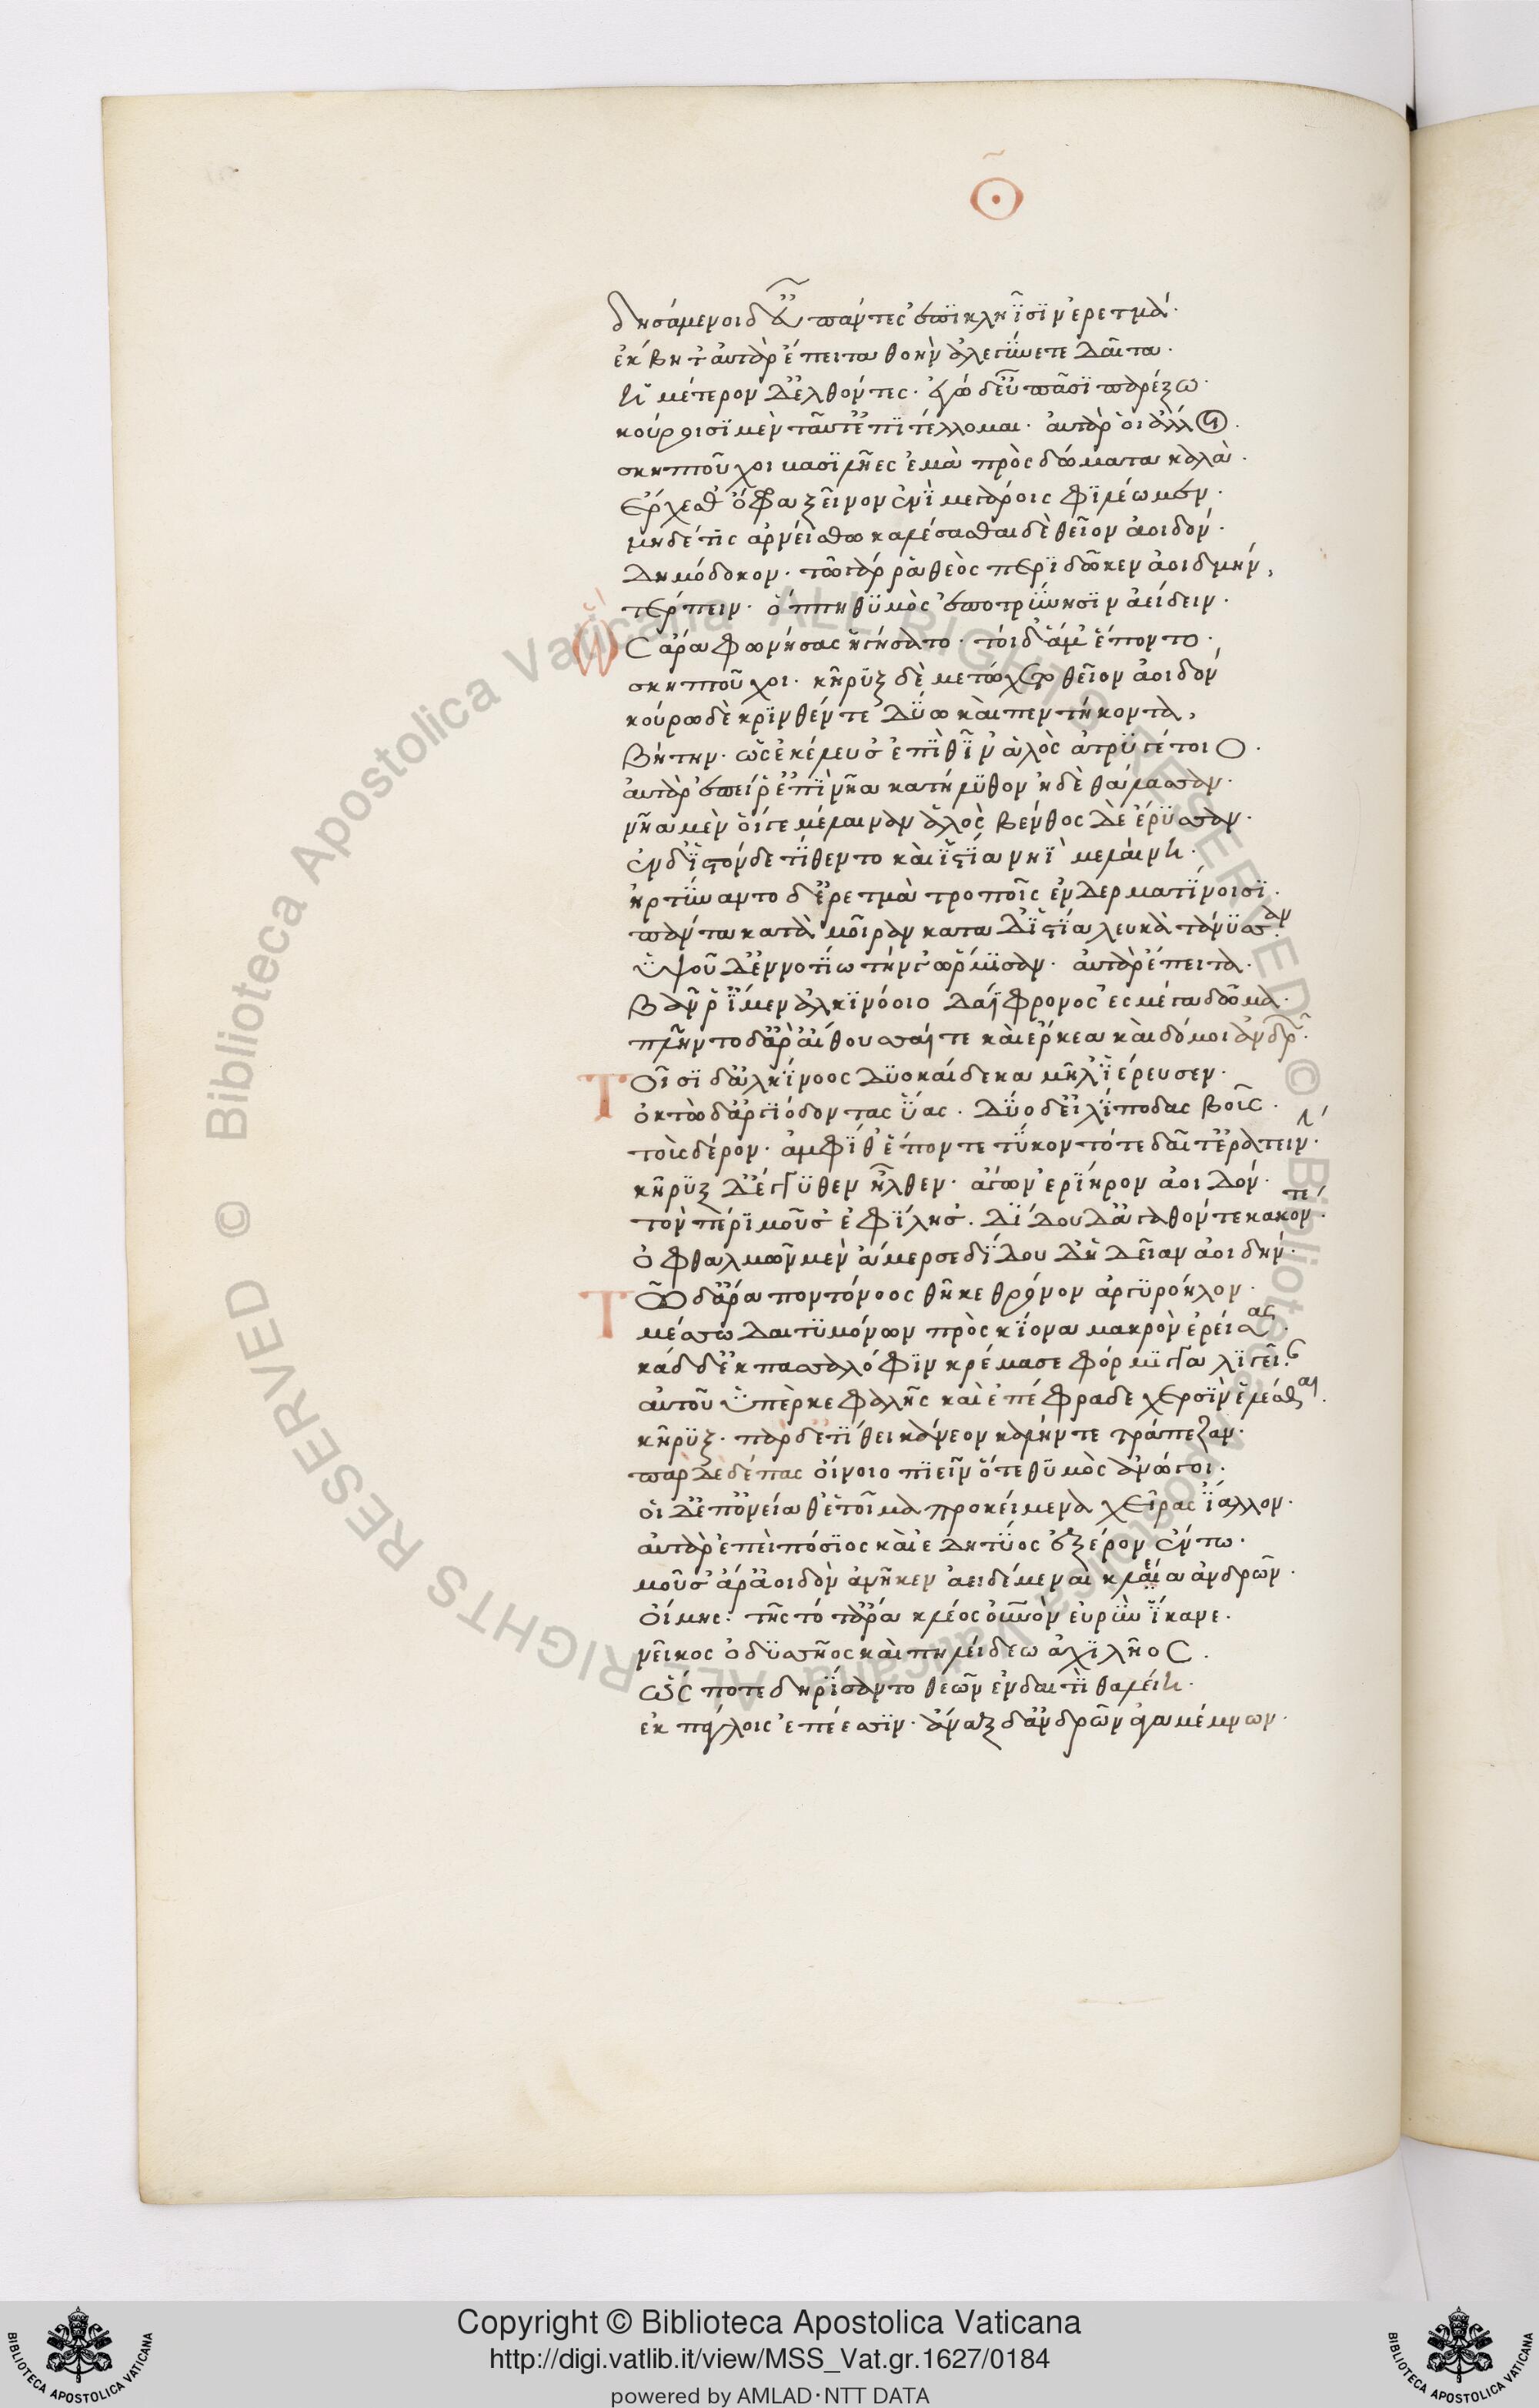 Θ
δησάμενοι δ' εὖ πάντες ἐπὶ κληῗσιν ἐρετμά·
ἔκβητ'· αὐτὰρ ἔπειτα θοὴν ἀλεγύνετε δαῖτα·
ἡμέτερον δ' ἐλθόντες· ἐγὼ δ' εὖ πᾶσι παρέξω·
κούροισι μὲν ταῦτ' ἐπιτέλλομαι· αὐτὰρ οἱ ἄλλοι·
σκηπτοῦχοι βασιλῆες ἐμὰ πρὸς δώματα καλά·
ἔρχεσθ' ὄφρα ξεῖνον ἐνὶ μεγάροις φιλέωμεν·
μηδέ τις ἀρνείσθω καλέσασθαι δὲ θεῖον ἀοιδόν·
Δημόδοκον· τῶ γάρ ῥα θεὸς περὶ δῶκεν ἀοιδὴν,
τέρπειν· ὅππη θυμὸς ἐποτρύνησιν ἀείδειν·
Ὣς ἄρα φωνήσας ἡγήσατο· τοὶ δ' ἅμ' ἕποντο·
σκηπτοῦχοι· κῆρυξ δὲ μετώχετο θεῖον ἀοιδόν
κούρω δὲ κρινθέντε δύω καὶ πεντήκοντα,
βήτην· ὡς ἐκέλευσ' ἐπὶ θῖν' ἁλὸς ἀτρυγέτοιο·
αὐτὰρ ἐπεί ῥ' ἐπὶ νῆα κατήλυθον ἠδὲ θάλασσαν·
νῆα μὲν οἵγε μέλαιναν ἁλὸς βένθος δὲ ἔρυσσαν·
ἐν δ' ἱστόν δ' ἐτίθεντο καὶ ἱστία νηῒ μελαίνη·
ἠρτύναντο δ' ἐρετμὰ τροποῖς ἐν δερματίνοισι·
πάντα κατὰ μοῖραν κατὰ δ' ἱστία λευκὰ τάνυσσαν·
ὑψοῦ δ' ἐν νοτίω τήνγ' ὥρμισαν· αὐτὰρ ἔπειτα·
βάν ῥ' ἴμεν ἀλκινόοιο δαΐφρονος ἐς μέγα δῶμα·
πλῆντο δ' ἄρ' αἴθουσαί τε καὶ ἕρκεα καὶ δόμοι ἀνδρῶν·
Τοῖσι δ' ἀλκίνοος δυοκαίδεκα μῆλ' ἱέρευσεν·
ὀκτὼ δ' ἀργιόδοντας ὕας· δύο δ' εἰλίποδας βοῦς·
τοὺς δέρον· ἀμφί θ' ἕπον τετύκοντό τε δαῖτ' ἐρατεινήν·
κῆρυξ δ' ἐγγύθεν ἦλθεν· ἄγων ἐρίηρον ἀοιδόν·
τὸν πέρι μοῦσ' ἐφίλησ'· δίδου δ' ἀγαθόν τε κακόν τε·
ὀφθαλμῶν μὲν ἄμερσε δίδου δ' ἡδεῖαν ἀοιδήν·
Τῶ δ' ἄρα ποντόνοος θῆκε θρόνον ἀργυρόηλον·
μέσσω δαιτυμόνων πρὸς κίονα μακρὸν ἐρείσας·
κὰδ δ' ἐκ πασσαλόφιν κρέμασε φόρμιγγα λίγειαν
αὐτοῦ ὑπὲρ κεφαλῆς καὶ ἐπέφραδε χερσὶν ἑλέσθαι·
κῆρυξ· πὰρ δ' ἐτίθει κάνεον καλήν τε τράπεζαν·
πὰρ δὲ δέπας οἴνοιο πιεῖν ὅτε θυμὸς ἀνώγοι·
οἱ δ' ἐπ' ὀνείαθ' ἑτοῖμα προκείμενα χεῖρας ἴαλλον·
αὐτὰρ ἐπεὶ πόσιος καὶ ἐδητύος ἐξ ἔρον ἕντο·
μοῦσ' ἄρ' ἀοιδὸν ἀνῆκεν ἀειδέμεναι κλέα ἀνδρῶν·
οἴμης· τῆς τότ' ἄρα κλέος οὐρανὸν εὐρὺν ἵκανε·
νεῖκος ὀδυσσῆος καὶ πηλείδεω ἀχιλῆος·
ὥς ποτε δηρίσαντο θεῶν ἐν δαιτὶ θαλείη·
ἐκπάγλοις ἐπέεσσιν· ἄναξ δ' ἀνδρῶν ἀγαμέμνων·
Copyright © Biblioteca Apostolica Vaticana
http://digi.vatlib.it/view/MSS_Vat.gr.1627/0184
powered by AMLAD·NTT DATA